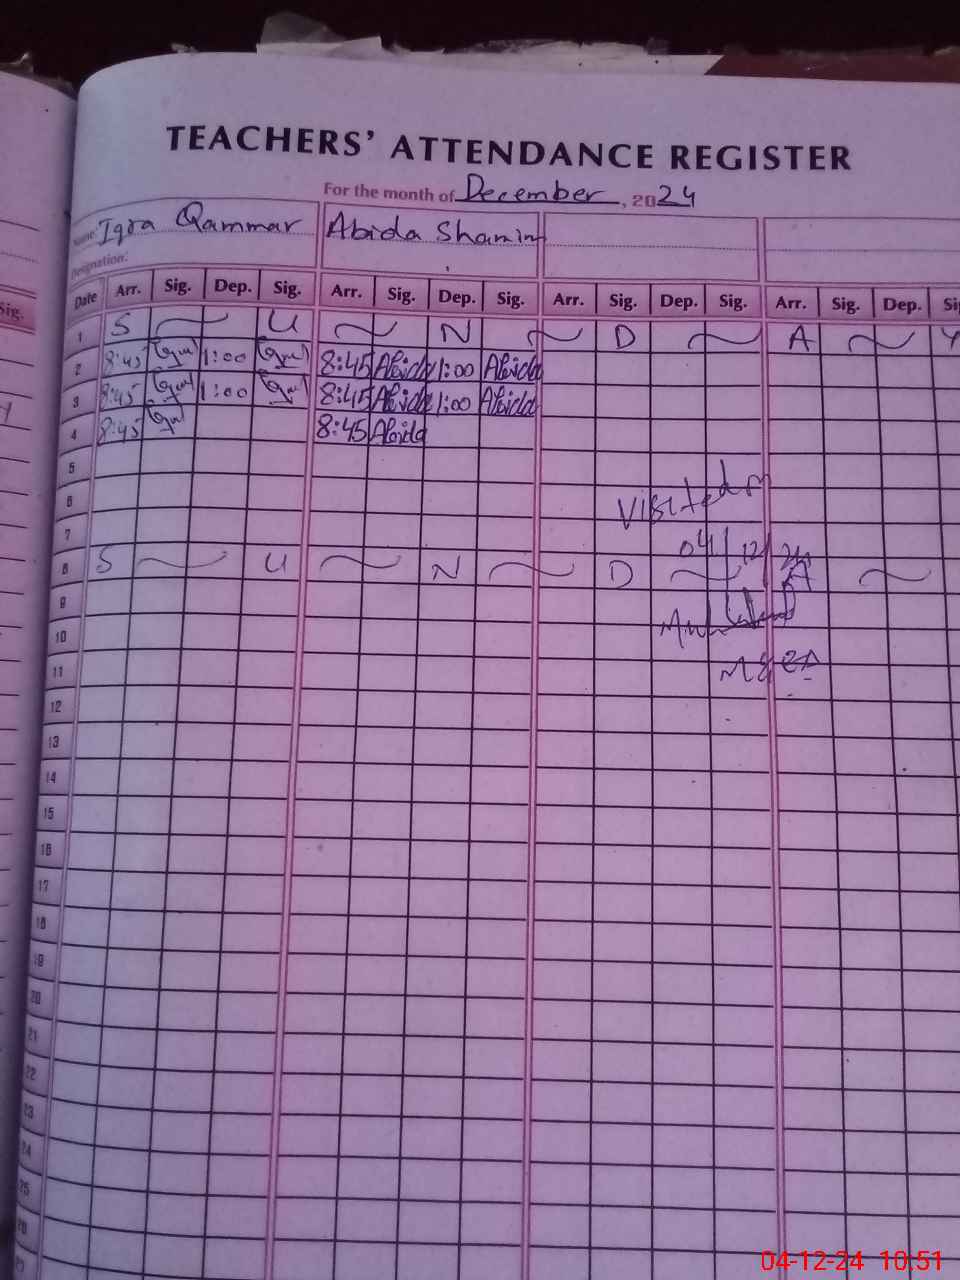 TEACHERS' ATTENDANCE REGISTER
For the month of December, 2024
Name: Iqra Qammar Abida Shamim
Designation:
Date Arr. Sig. Dep. Sig. Arr. Sig. Dep. Sig. Arr. Sig. Dep. Sig. Arr. Sig. Dep.
1 S U N D A Y
2 8:45 1:00 8:45 Abida 1:00 Abida
3 8:45 1:00 8:45 Abida 1:00 Abida
4 8:45 8:45 Abida
5
6 Visited on
7 04/12/24
8 S U N D A
9
10
11
12
13
14
15
16
17
18
19
20
21
22
23
24
25
26
04-12-24 10:51